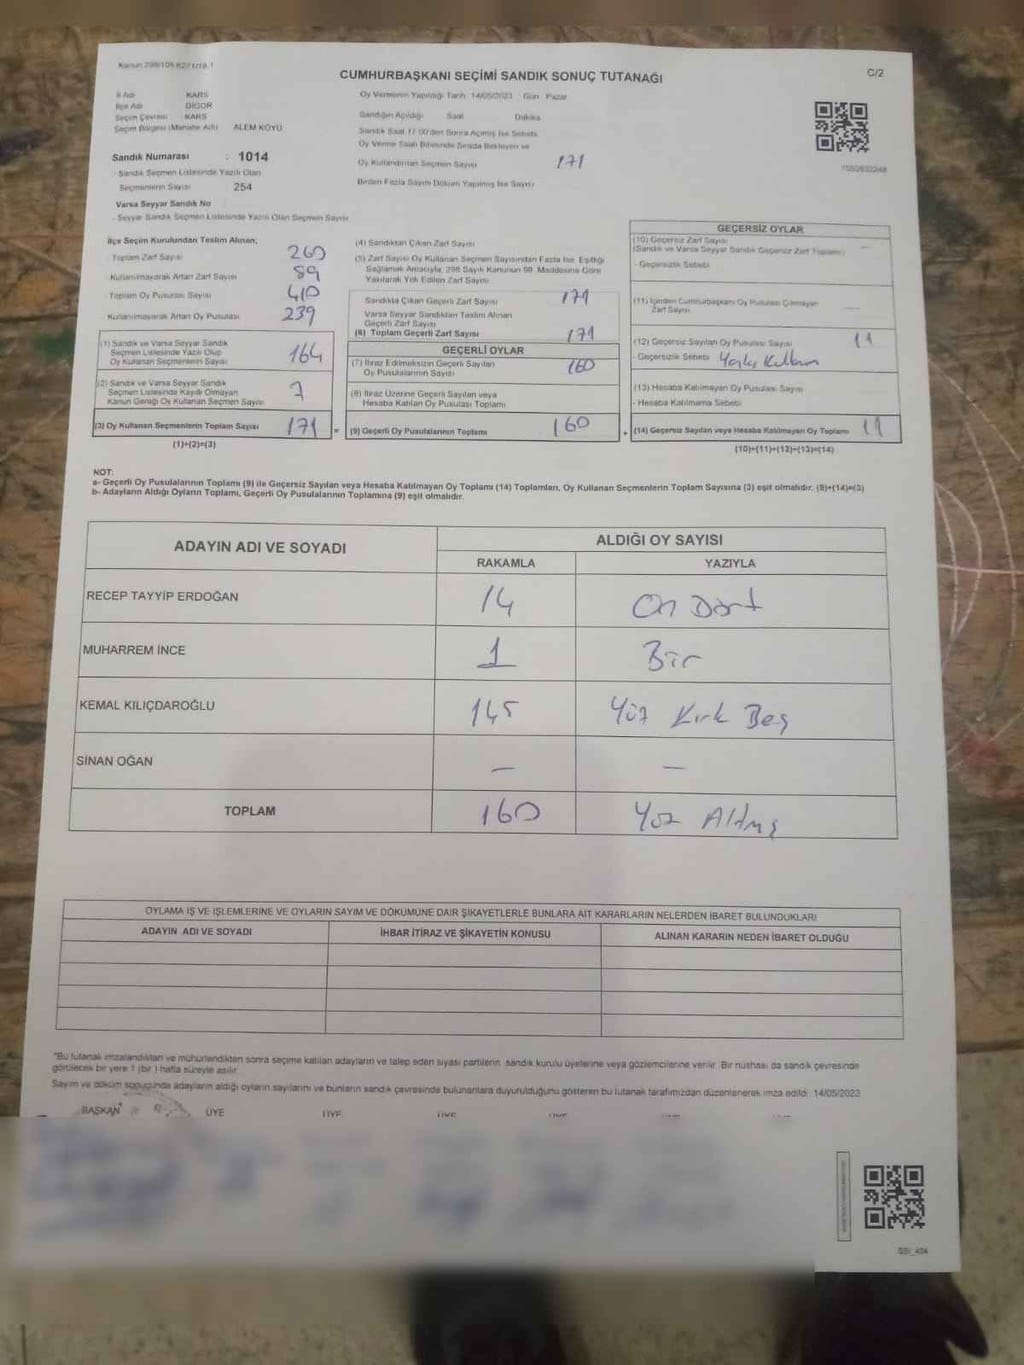 Kanun:298/105 627 1/19.1
CUMHURBAŞKANI SEÇİMİ SANDIK SONUÇ TUTANAĞI
C/2
İl Adı KARS
İlçe Adı DİGOR
Seçim Çevresi KARS
Seçim Bölgesi (Mahalle Adı) ALEM KÖYÜ
Sandık Numarası : 1014
- Sandık Seçmen Listesinde Yazılı Olan
Seçmenlerin Sayısı 254
Varsa Seyyar Sandık No
- Seyyar Sandık Seçmen Listesinde Yazılı Olan Seçmen Sayısı
Oy Vermenin Yapıldığı Tarih: 14/05/2023 Gün Pazar
Sandığın Açıldığı Saat Dakika
Sandık Saat 17.00'den Sonra Açılmış İse Sebebi
Oy Verme Saati Bitiminde Sırada Bekleyen ve
Oy Kullandırılan Seçmen Sayısı 171
Birden Fazla Sayım Döküm Yapılmış İse Sayısı
İlçe Seçim Kurulundan Teslim Alınan;
Toplam Zarf Sayısı 260
Kullanılmayarak Artan Zarf Sayısı 89
Toplam Oy Pusulası Sayısı 410
Kullanılmayarak Artan Oy Pusulası 239
(1) Sandık ve Varsa Seyyar Sandık
Seçmen Listesinde Yazılı Olup
Oy Kullanan Seçmenlerin Sayısı 164
(2) Sandık ve Varsa Seyyar Sandık
Seçmen Listesinde Kayıtlı Olmayan
Kanun Gereği Oy Kullanan Seçmen Sayısı 7
(3) Oy Kullanan Seçmenlerin Toplam Sayısı 171 =
(1)+(2)=(3)
(4) Sandıktan Çıkan Zarf Sayısı
(5) Zarf Sayısı Oy Kullanan Seçmen Sayısından Fazla İse, Eşitliği
Sağlamak Amacıyla, 298 Sayılı Kanunun 98. Maddesine Göre
Yakılarak Yok Edilen Zarf Sayısı
Sandıkta Çıkan Geçerli Zarf Sayısı 171
Varsa Seyyar Sandıktan Teslim Alınan
Geçerli Zarf Sayısı
(6) Toplam Geçerli Zarf Sayısı 171
GEÇERLİ OYLAR
(7) İtiraz Edilmeksizin Geçerli Sayılan
Oy Pusulalarının Sayısı 160
(8) İtiraz Üzerine Geçerli Sayılan veya
Hesaba Katılan Oy Pusulası Toplamı
(9) Geçerli Oy Pusulalarının Toplamı 160 +
GEÇERSİZ OYLAR
(10) Geçersiz Zarf Sayısı
(Sandık ve Varsa Seyyar Sandık Geçersiz Zarf Toplamı) —
- Geçersizlik Sebebi
(11) İçinden Cumhurbaşkanı Oy Pusulası Çıkmayan
Zarf Sayısı —
(12) Geçersiz Sayılan Oy Pusulası Sayısı 11
- Geçersizlik Sebebi
(13) Hesaba Katılmayan Oy Pusulası Sayısı
- Hesaba Katılmama Sebebi
(14) Geçersiz Sayılan veya Hesaba Katılmayan Oy Toplamı 11
(10)+(11)+(12)+(13)=(14)
NOT:
a- Geçerli Oy Pusulalarının Toplamı (9) ile Geçersiz Sayılan veya Hesaba Katılmayan Oy Toplamı (14) Toplamları, Oy Kullanan Seçmenlerin Toplam Sayısına (3) eşit olmalıdır. (9)+(14)=(3)
b- Adayların Aldığı Oyların Toplamı, Geçerli Oy Pusulalarının Toplamına (9) eşit olmalıdır.
ADAYIN ADI VE SOYADI
ALDIĞI OY SAYISI
RAKAMLA YAZIYLA
RECEP TAYYİP ERDOĞAN 14 On Dört
MUHARREM İNCE 1 Bir
KEMAL KILIÇDAROĞLU 145 Yüz Kırk Beş
SİNAN OĞAN — —
TOPLAM 160 Yüz Altmış
OYLAMA İŞ VE İŞLEMLERİNE VE OYLARIN SAYIM VE DÖKÜMÜNE DAİR ŞİKAYETLERLE BUNLARA AİT KARARLARIN NELERDEN İBARET BULUNDUKLARI
ADAYIN ADI VE SOYADI İHBAR İTİRAZ VE ŞİKAYETİN KONUSU ALINAN KARARIN NEDEN İBARET OLDUĞU
*Bu tutanak imzalandıktan ve mühürlendikten sonra seçime katılan adayların ve talep eden siyasi partilerin sandık kurulu üyelerine veya gözlemcilerine verilir. Bir nüshası da sandık çevresinde
görülecek bir yere 1 (bir) hafta süreyle asılır.
Sayım ve döküm sonucunda adayların aldığı oyların sayılarını ve bunların sandık çevresinde bulunanlara duyurulduğunu gösteren bu tutanak tarafımızdan düzenlenerek imza edildi. 14/05/2023
BAŞKAN ÜYE ÜYE ÜYE ÜYE
SSİ_404